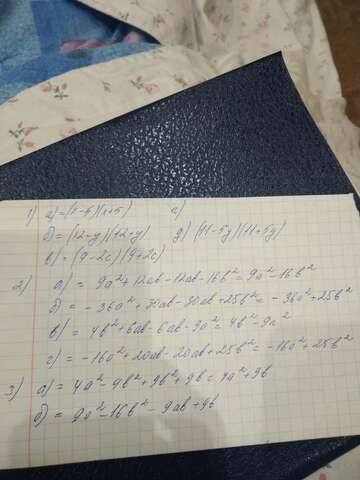 1) а) = (x-5)(x+5) г)
б) = (12-y)(12+y) д) (11-5y)(11+5y)
в) = (9-2c)(9+2c)
2) а) = 9a²+12ab-12ab-16b² = 9a²-16b²
б) = -36a²+30ab-30ab+25b² = -36a²+25b²
в) = 4b²+6ab-6ab-9a² = 4b²-9a²
г) = -16a²+20ab-20ab+25b² = -16a²+25b²
3) а) = 4a²-9b²+9b²+9b = 4a²+9b
б) = 9a²-16b²-9ab+9b